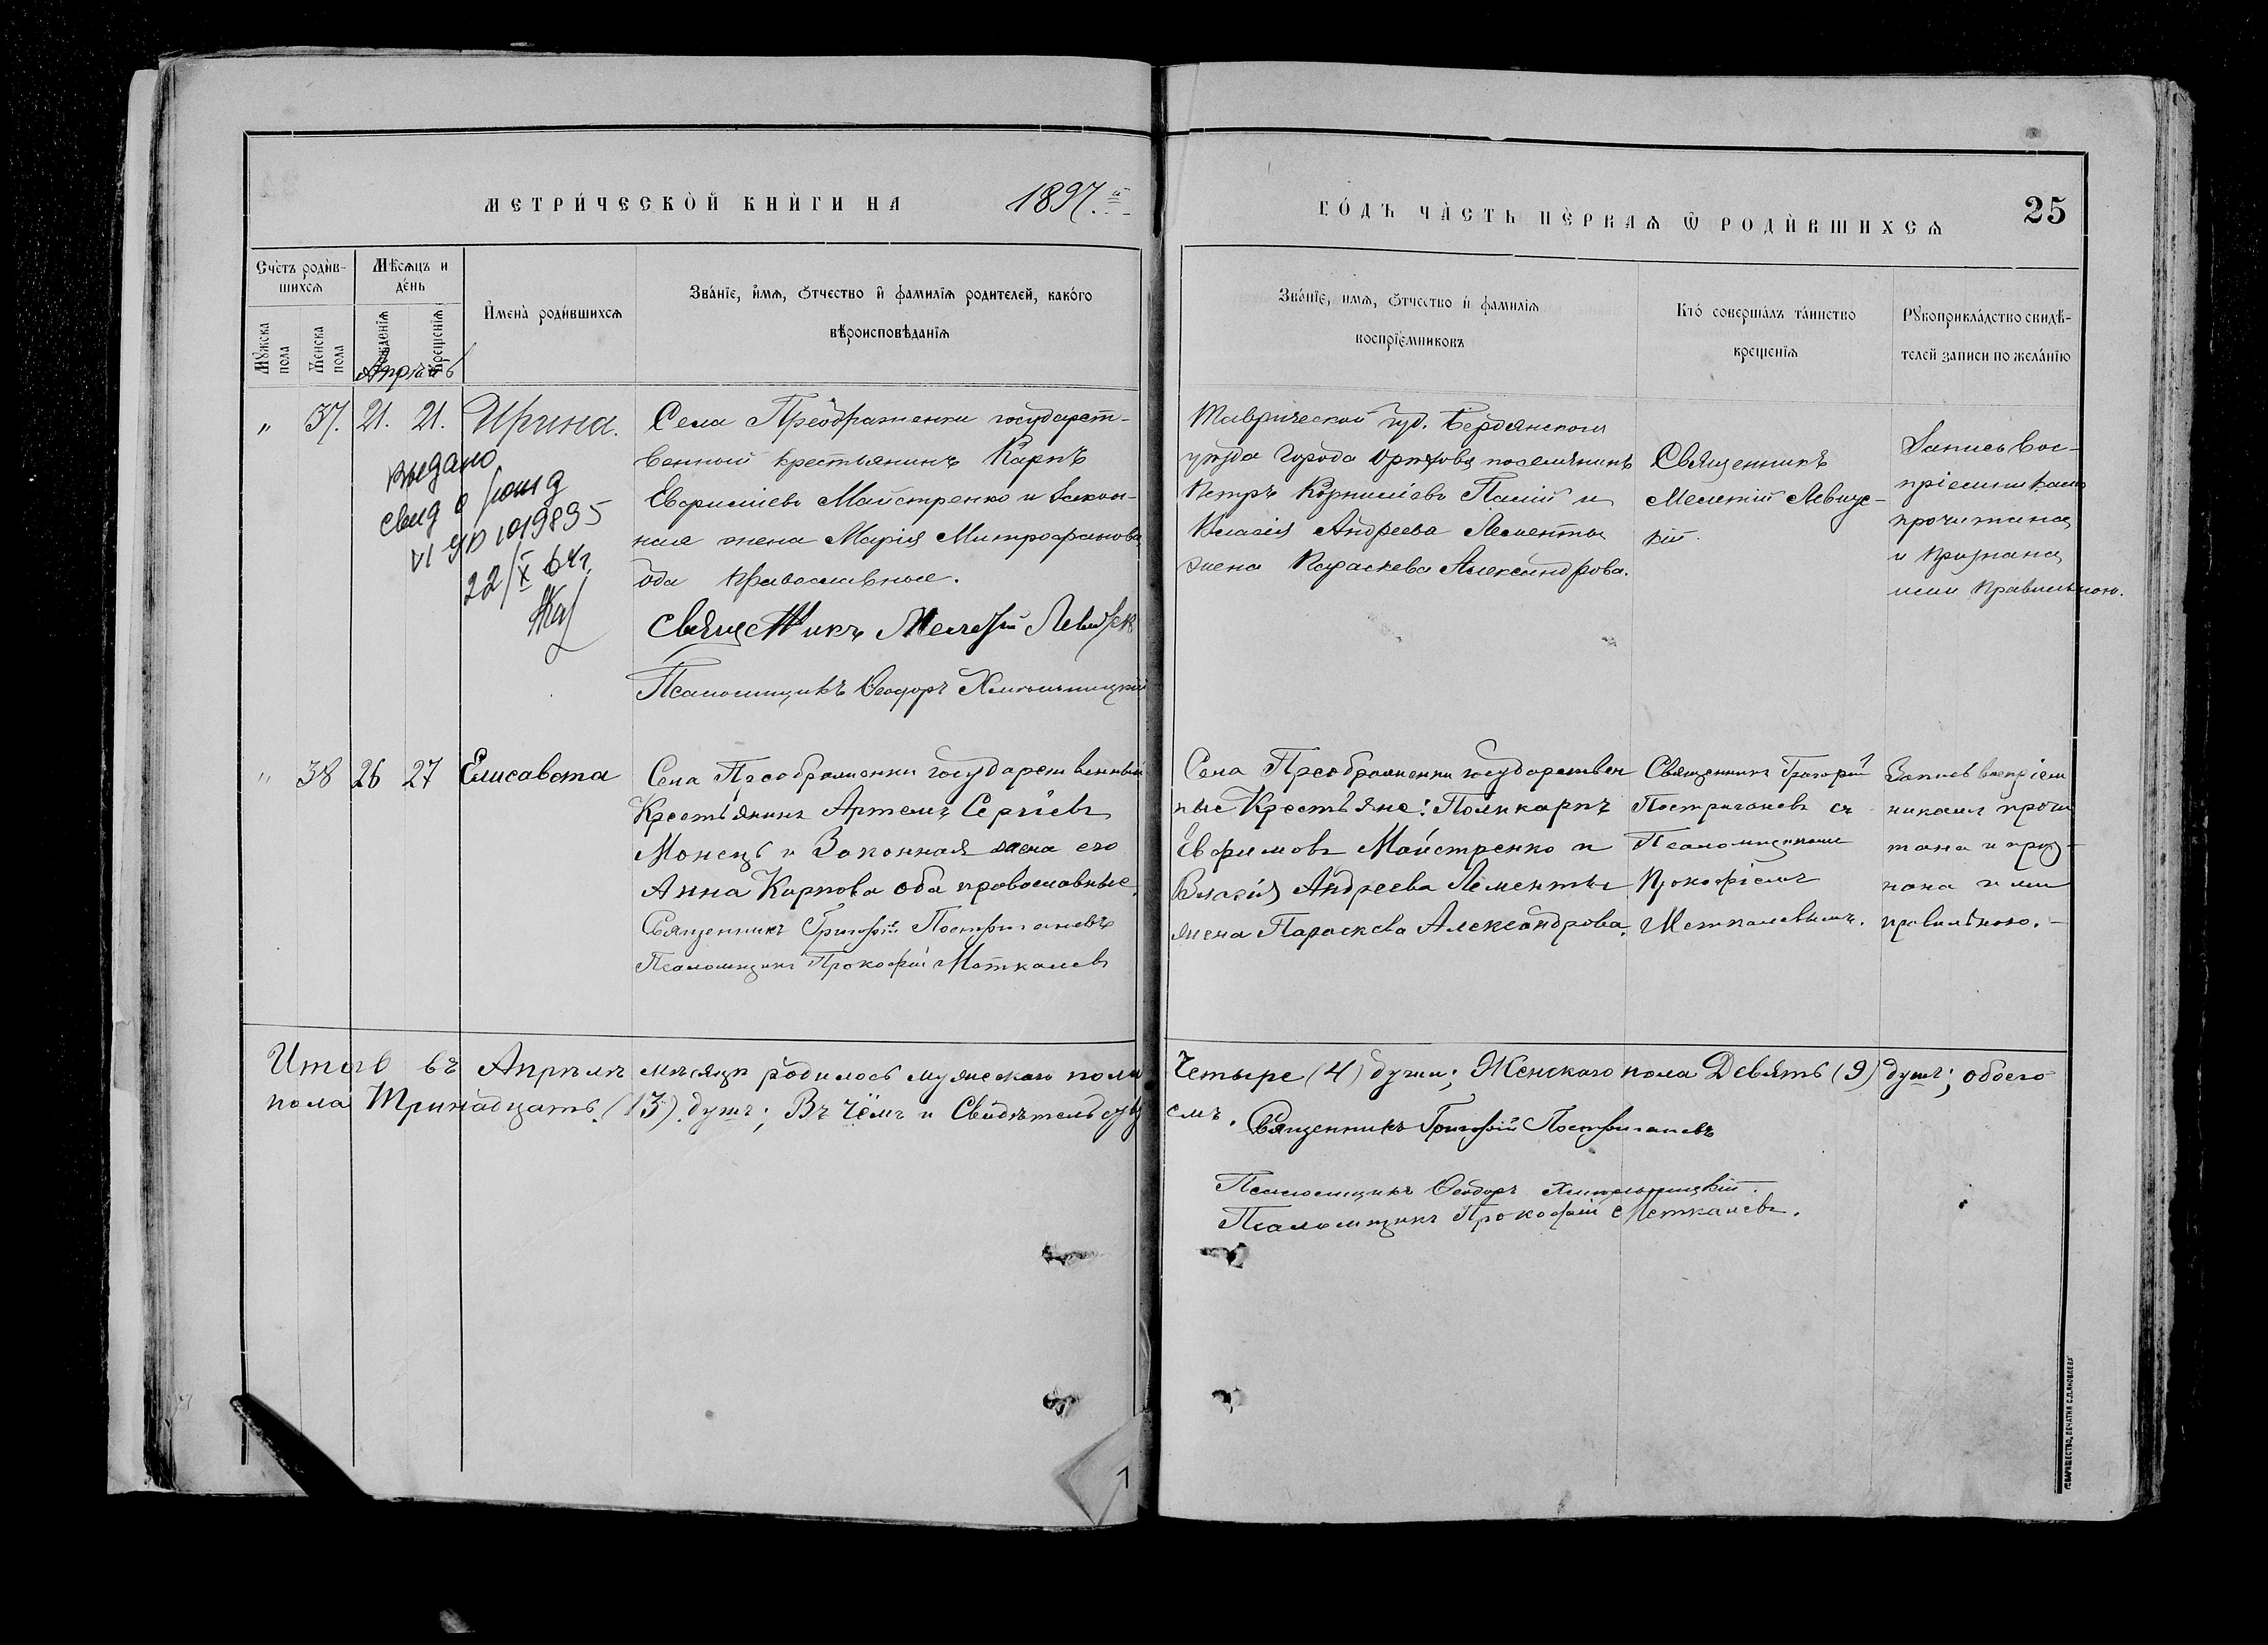 МЕТРИ́ЧЕСКОЙ КНИ́ГИ НА 1897.й
ГО́ДЪ ЧА́СТЬ ПЕ́РВАѦ Ѿ РОДИ́ВШИХСѦ 25
Сче́тъ роди́в-
шихсѧ
Мѣ́сѧцъ и
де́нь
Мꙋ́жска
пола
Же́нска
пола
Рожденіѧ
Крещеніѧ
И҆мена̀ роди́вшихсѧ
Зва́нїе, и҆́мѧ, ѻ҆́тчество и҆ фами́лїѧ родителей, како́гѡ
вѣроисповѣ́данїѧ
Зва́нїе, имѧ, ѻ҆́тчество и҆ фамилїѧ
воспрїе́мниковъ
Кто́ соверша́лъ та́инство
креще́нїѧ
Рꙋкоприкла́дство свидѣ́-
телей записи по жела́нїю
Апрѣль
„ 37. 21. 21. Ирина.
выдано
свид о рожд
VI ЯР 1019895
22/X 64г.
Села Преображенки государст-
венный крестьянинъ Карпъ
Майстренко и Закон-
ная жена Марія Митрофанова,
оба православные.
Священникъ Мелетій
Псаломщикъ Ѳеодоръ
Таврической губ. Бердянскаго
уѣзда Города Орѣхова поселянинъ
Петръ Корниліевъ Палій и
Власія Андреева Лементы
жена Параскева Александрова.
Священникъ
Мелетій Левиц-
кій.
Запись вос-
пріемниками
прочитана
и признана
ими правильною.
„ 38 26 27 Елисавета
Села Преображенки государственный
Крестьянинъ Артемъ Сергіевъ
Монецъ и Законная жена его
Анна Карпова оба православные.
Священникъ Григорій Постригачевъ
Псаломщикъ Прокофій Меткалевъ
Села Преображенки государствен
ные Крестьяне: Поликарпъ
Евфимовъ Майстренко и
Власія Андреева Лементы
жена Параскева Александрова.
Священникъ Григорій
Постригачевъ съ
Псаломщикомъ
Прокофіемъ
Меткалевымъ.
Запись воспріем
никами прочи
тана и приз-
нана ими
правильною.-
Итого въ Апрѣлѣ мѣсяцѣ родилось мужескаго пола
Четыре (4) души; Женскаго пола Девять (9) душъ; обоего
пола Тринадцать (13) душъ; Въ чемъ и Свидѣтельству
емъ.
Священникъ Григорій Постригачевъ
Псаломщикъ Ѳеодоръ
Псаломщикъ Прокофій Меткалевъ.
1
ТОВАРИЩЕСТВО „ПЕЧАТНЯ С.П.ЯКОВЛЕВА“